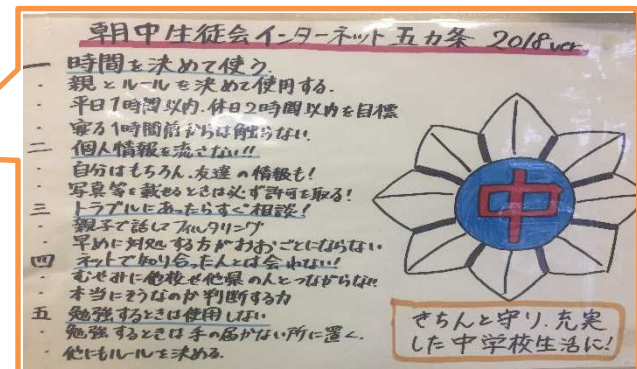 朝中生徒会インターネット五カ条 2018ver.
一 時間を決めて使う.
・ 親とルールを決めて使用する.
・ 平日1時間以内.休日2時間以内を目標
・ 寝る1時間前からは触らない.
二 個人情報を流さない!!
・ 自分はもちろん、友達の情報も!
・ 写真等を載せるときは必ず許可を取る!
三 トラブルにあったらすぐ相談!
・ 親子で話してフィルタリング
・ 早めに対処する方がおおごとにならない
四 ネットで知り合った人とは会わない!
・ むやみに他校や他県の人とつながらない
・ 本当にそうなのか判断する力
五 勉強するときは使用しない
・ 勉強するときは手の届かない所に置く.
・ 他にもルールを決める.
中
きちんと守り、充実
した中学校生活に!